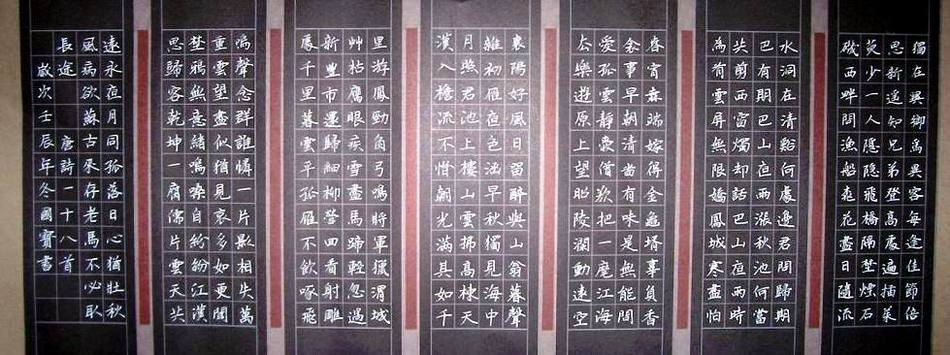 獨在異鄉為異客每逢佳節倍
思親遙知兄弟登高處遍插茱
萸少一人隱隱飛橋隔野煙石
磯西畔問漁船桃花盡日隨流
水洞在清谿何處邊君問歸期
未有期巴山夜雨漲秋池何當
共剪西窗燭却話巴山夜雨時
為有雲屏無限嬌鳳城寒盡怕
春宵無端嫁得金龜壻辜負香
衾事早朝清時有味是無能閒
愛孤雲靜愛僧欲把一麾江海
去樂遊原上望昭陵瀾動遠空
襄陽好風日留醉與山翁暮聲
雜初雁夜色涵早秋獨見海中
月照君池上樓山雲拂高棟天
漢入檐流不惜朝光滿其如千
里游風勁角弓鳴將軍獵渭城
艸枯鷹眼疾雪盡馬蹄輕忽過
新豐市還歸細柳營回看射雕
處千里暮雲平孤雁不飲啄飛
鳴聲念群誰憐一片影相失萬
重雲望盡似猶見哀多如更聞
埜鴉無意緒鳴噪自紛紛江漢
思歸客乾坤一腐儒片雲天共
遠永夜月同孤落日心猶壯秋
風病欲蘇古來存老馬不必取
長途 唐詩一十八首
歲次壬辰年冬國寶書